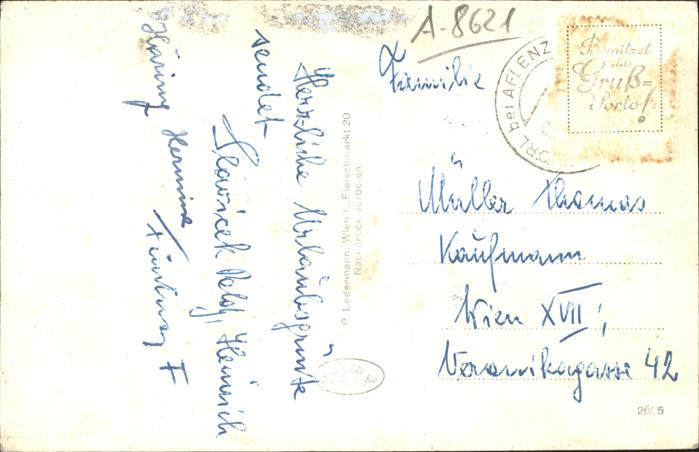 A-8621
Familie
Müller Thomas
Kaufmann
Wien XVII,
Veronikagasse 42
Herzliche Urlaubsgrüße
sendet
Slavicek Poldy, Heinrich
Häring Hermine
THÖRL bei AFLENZ
Benützet
das
Gruß=
Porto!
P. Ledermann, Wien I., Fleischmarkt 20
Nachdruck verboten
Echte
2605